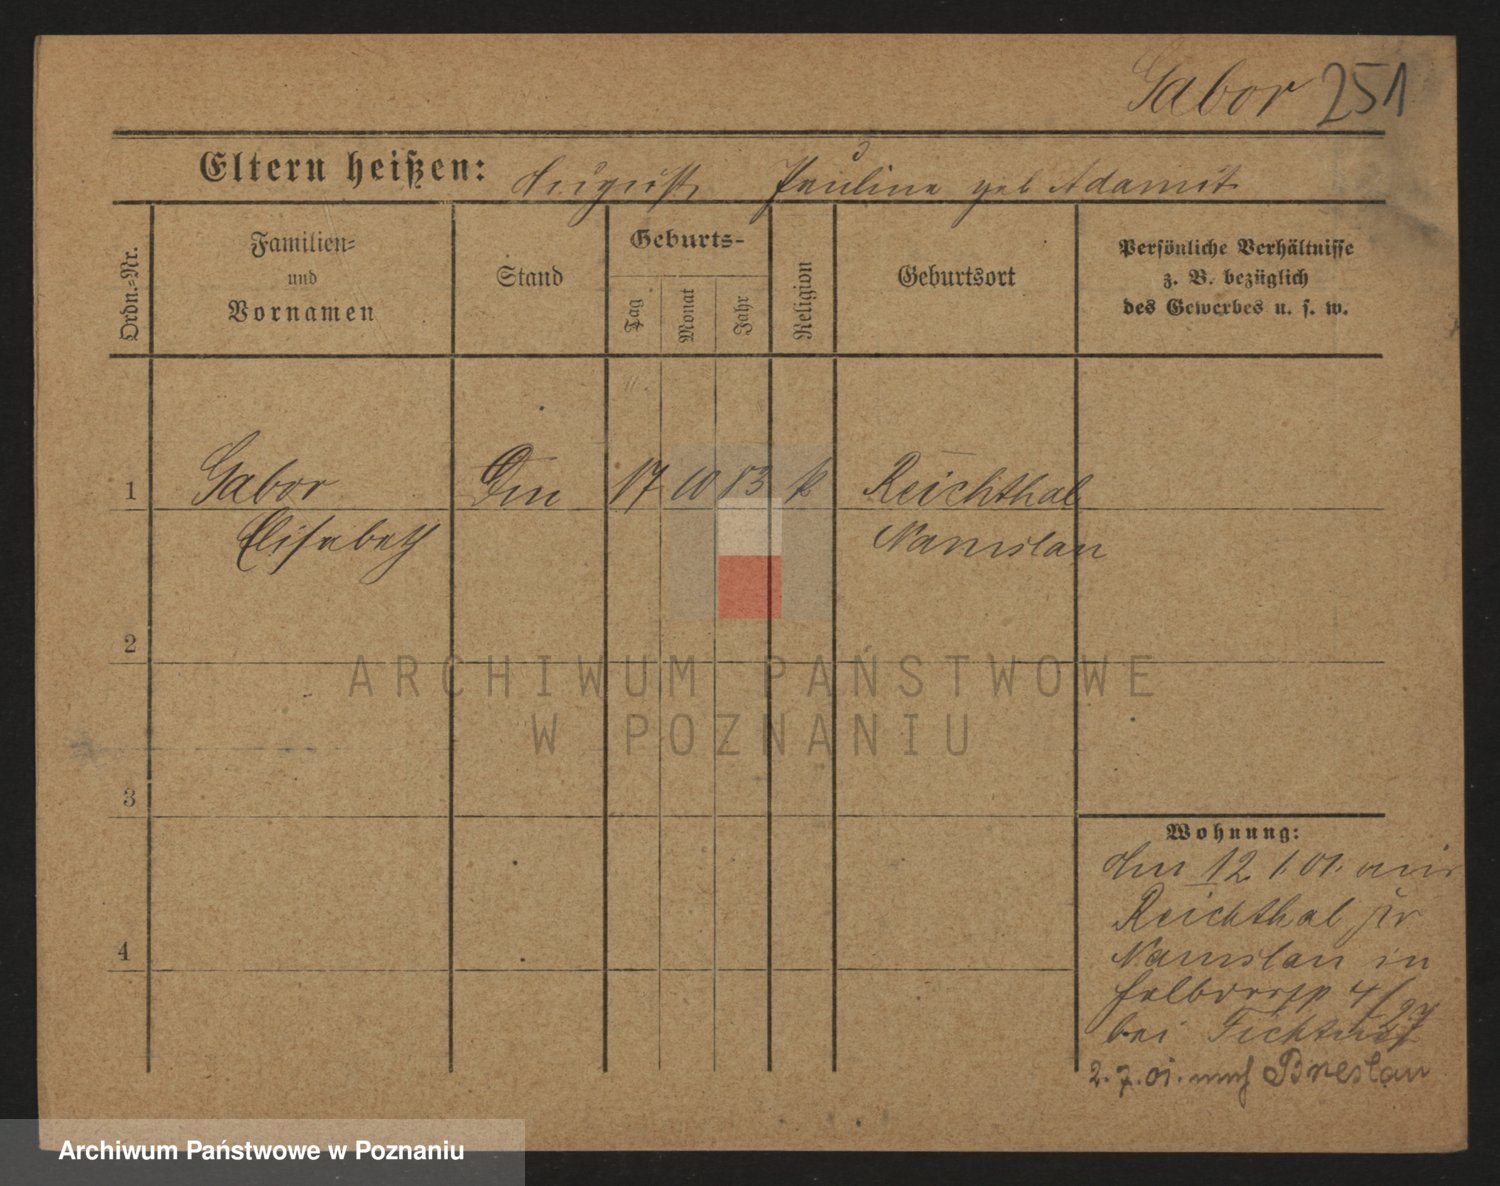 Gabor 251
Eltern heißen: August Pauline geb Adamit
Ordn.-Nr.
Familien-
und
Vornamen
Stand
Geburts-
Tag
Monat
Jahr
Religion
Geburtsort
Persönliche Verhältnisse
z. B. bezüglich
des Gewerbes u. s. w.
1 Gabor 17 10 83 k Reichthal
Elisabeth Namslau
2
3
4
Wohnung:
12 1. 01. aus
Reichthal Kr
Namslau in
4/27
bei
2. 7. 01. nach Breslau
ARCHIWUM PAŃSTWOWE
W POZNANIU
Archiwum Państwowe w Poznaniu